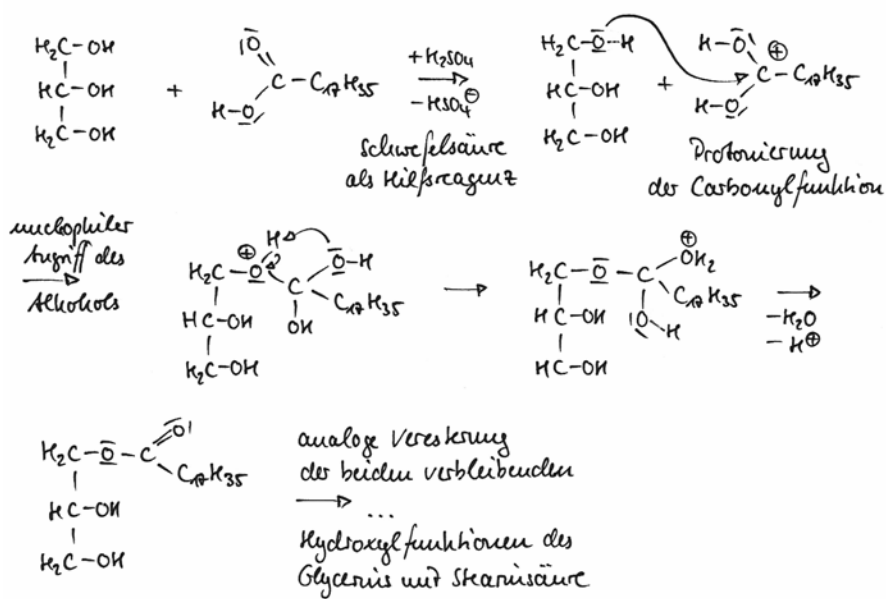 H₂C-OH
HC-OH
H₂C-OH
+
|O̅
C-C₁₇H₃₅
H-O̅
+H₂SO₄
-HSO₄⊖
Schwefelsäure
als Hilfsreagenz
H₂C-O̅-H
HC-OH
H₂C-OH
+
H-O̅
⊕
C-C₁₇H₃₅
H-O̅
Protonierung
der Carbonylfunktion
nucleophiler
Angriff des
Alkohols
H
⊕
H₂C-O
O̅-H
C
C₁₇H₃₅
OH
HC-OH
H₂C-OH
⊕
OH₂
H₂C-O̅-C
C₁₇H₃₅
|O-H
HC-OH
HC-OH
-H₂O
-H⊕
O̅|
H₂C-O̅-C
C₁₇H₃₅
HC-OH
H₂C-OH
analoge Veresterung
der beiden verbleibenden
...
Hydroxylfunktionen des
Glycerins mit Stearinsäure